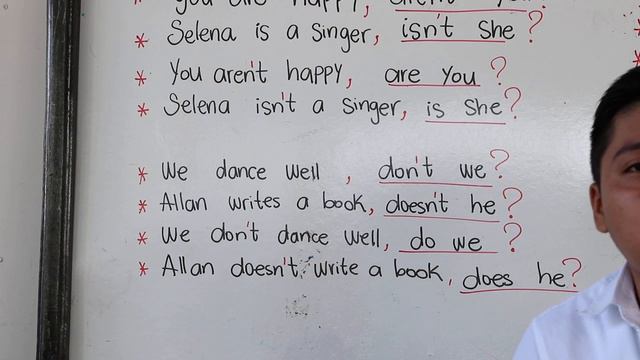 you are happy, aren't you?
* Selena is a singer, isn't she?
* You aren't happy, are you?
* Selena isn't a singer, is she?
* We dance well , don't we?
* Allan writes a book, doesn't he?
* We don't dance well, do we ?
* Allan doesn't write a book, does he?